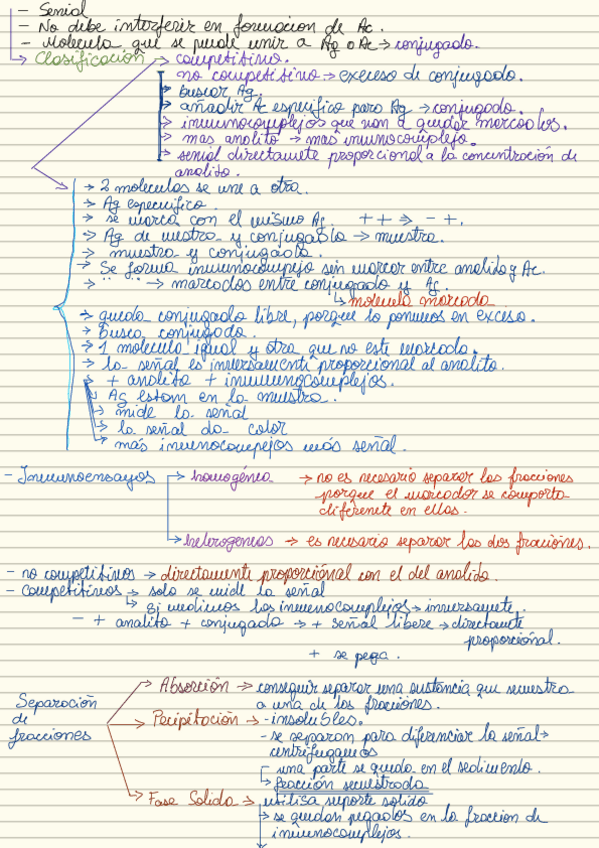 - Senial
- No debe interferir en formacion de Ac.
- Molecula que se puede unir a Ag o Ac → conjugado.
→ Clasificación → competitivo.
no competitivo → exceso de conjugado.
→ buscar Ag.
→ añadir Ac especifico para Ag → conjugado.
→ inmunocomplejos que van a quedar marcados.
→ mas analito → mas inmunocomplejo.
→ senial directamete proporcional a la concentración de
analito.
→ 2 moleculas se une a otra.
→ Ag especifico.
→ se marca con el mismo Ac. ++ ⇒ - +.
→ Ag de mestra y conjugabla → muestra.
→ muestra y conjugabla.
→ Se forma inmunocompejo sin marcar entre analido y Ac.
→ " " → marcados entre conjugado y Ag.
↳ molecula marcada
→ queda conjugado libre, porque lo ponemos en exceso.
→ Busca conjugado.
→ 1 molecula igual y otra que no este marcada.
→ la señal es inversamente proporcional al analito.
→ + analito + inmunocomplejos.
→ Ag estan en la muestra.
→ mide la señal
→ la señal da color
→ más inmunocompejos más señal.
- Inmunoensayos → homogénea → no es necesario separar las fracciones
porque el marcador se comporta
diferente en ellas.
→ heterogeneas → es necesario separar las dos fracciones.
- no competitivos → directamente proporciónal con el del analido.
- Competitivos → solo se mide la señal
↳ Si medimos los inmunocomplejos → inversamete.
- + analito + conjugado → + señal libere → directamete
proporciónal.
+ se pega.
Separación
de
fracciones
→ Absorción → conseguir separar una sustancia que secuestra
a una de las fracciones.
→ Pecipitación → - insolubles.
- se separan para diferenciar la señal →
centrifugamos
una parte se queda en el sedimento.
→ fracción secuestrada
→ Fase Solida → utilisa suporte solido
→ se quedan pegados en la fraccion de
inmunocomplejos.